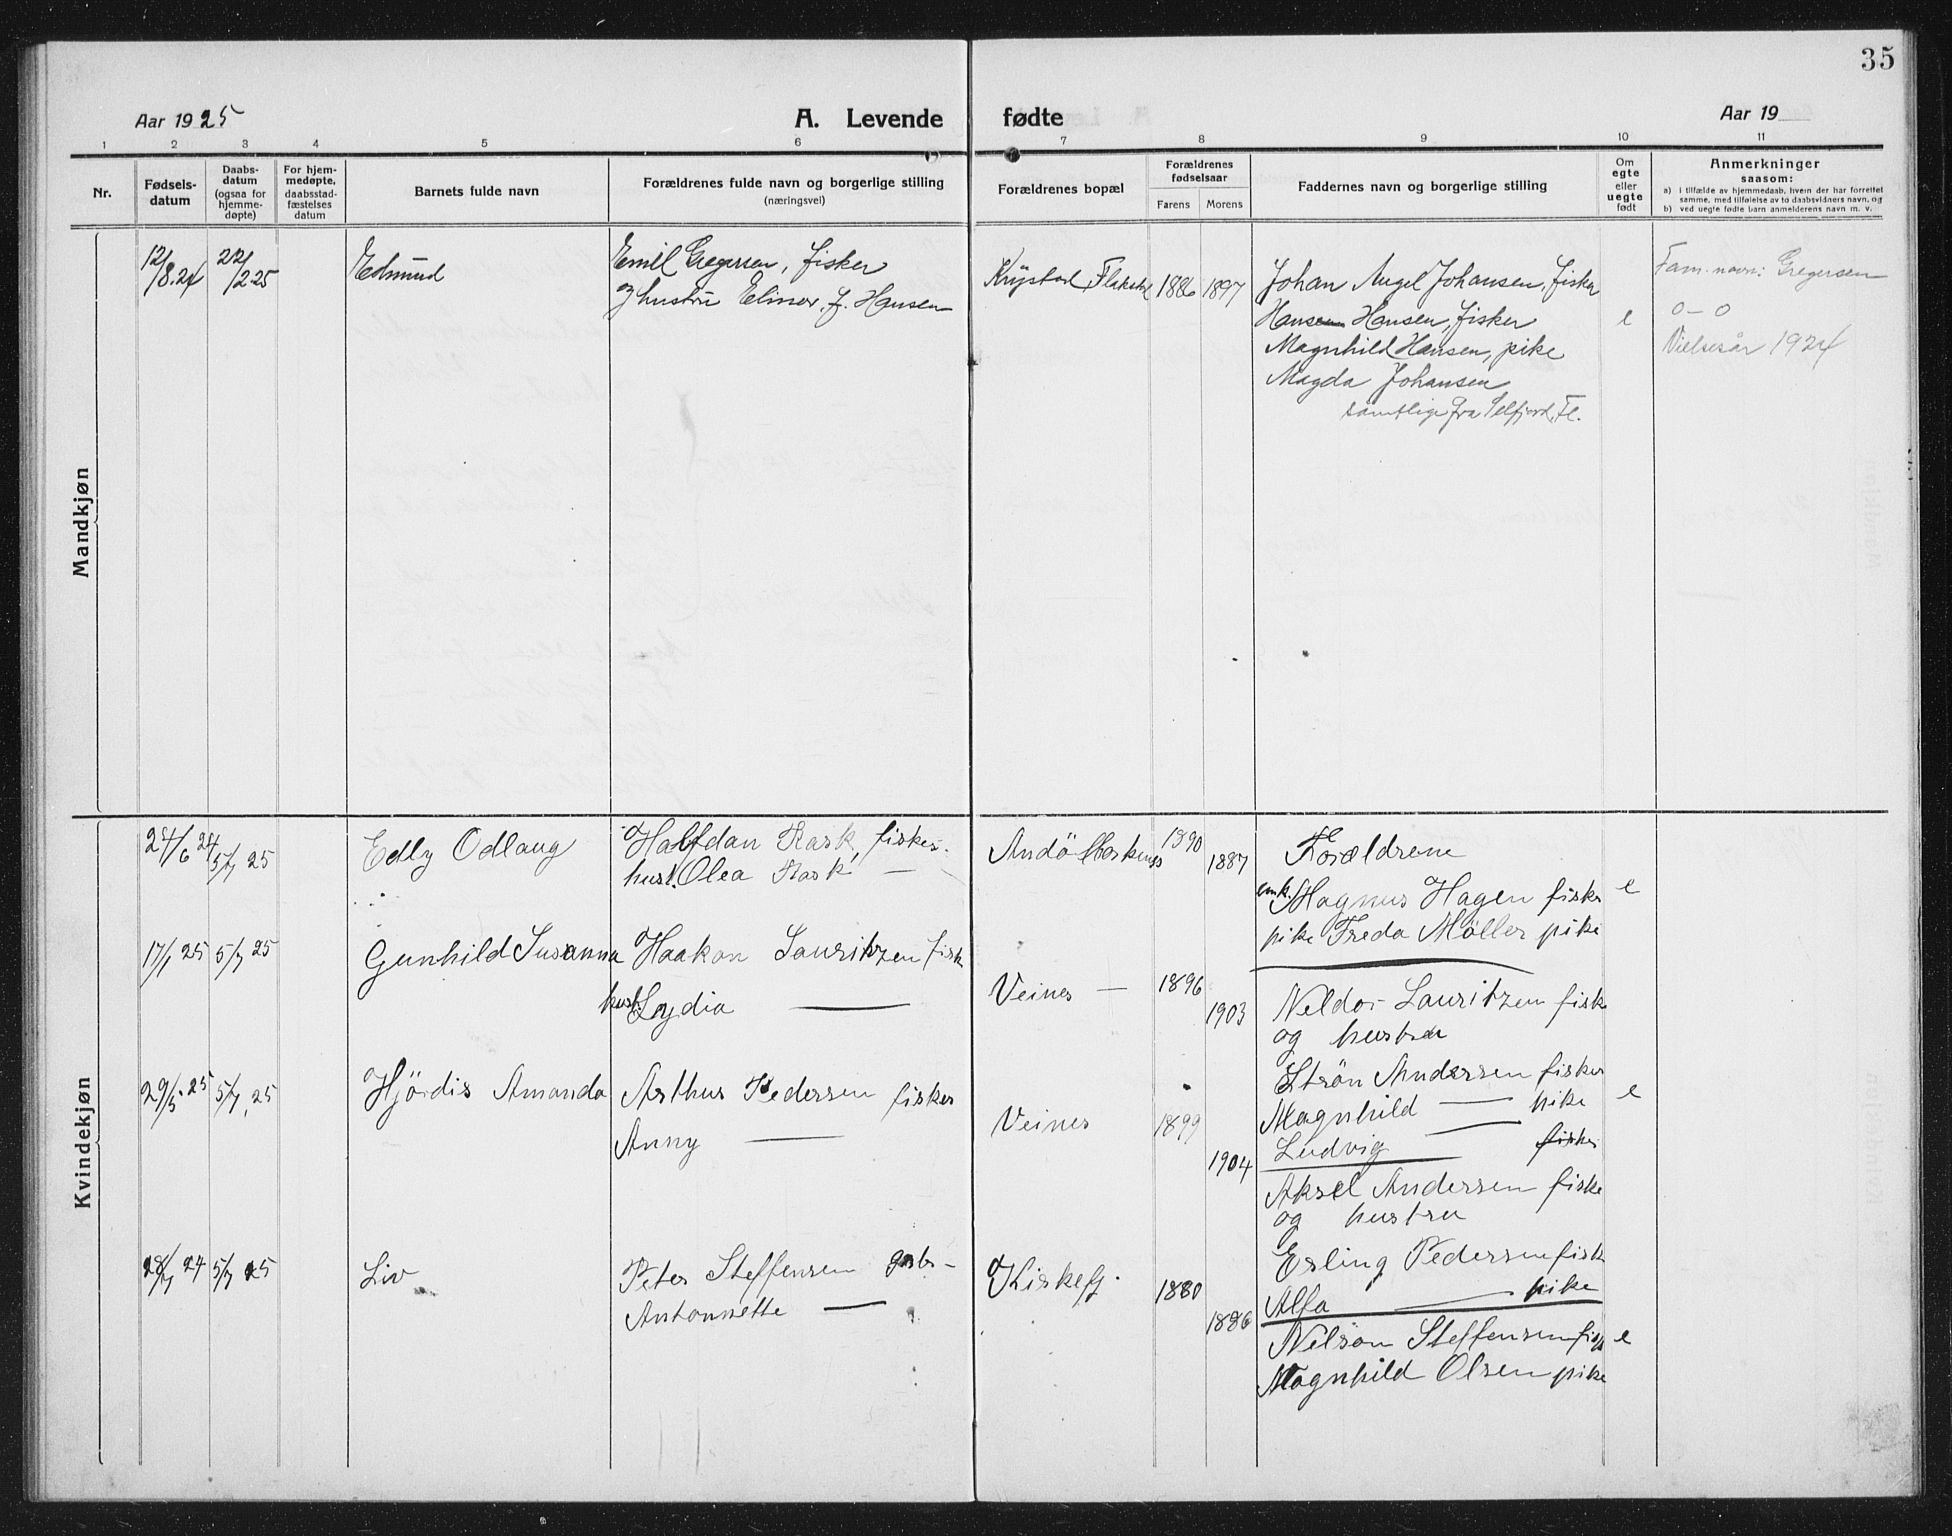 35
Aar 1925
A. Levende fødte
Aar 19
1 2 3 4 5 6 7 8 9 10 11
Nr.
Fødsels-
datum
Daabs-
datum
(ogsaa for
hjemme-
døpte)
For hjem-
medøpte,
daabsstad-
fæstelses
datum
Barnets fulde navn
Forældrenes fulde navn og borgerlige stilling
(næringsvei)
Forældrenes bopæl
Forældrenes
fødselsaar
Farens Morens
Faddernes navn og borgerlige stilling
Om
egte
eller
uegte
født
Anmerkninger
saasom:
a) i tilfælde av hjemmedaab, hvem der har forrettet
samme, med tilføielse av to daabsvidners navn, og
b) ved uegte fødte barn anmelderens navn m. v.
Mandkjøn
12/8.24 22/2.25 Edmund
Emil Gregersen, fisker
og hustru Elinor, f. Hansen
Krystad, Flakstad 1886 1897
Johan Angel Johansen, fisker
Hansen Hansen, fisker
Magnhild Hansen, pike
Magda Johansen
samtlige fra Selfjord, Fl.
e
Fam. navn: Gregersen
o - o
Vielsesår 1924
Kvindekjøn
24/6 24 5/7 25 Edly Odlaug
Halfdan Rask, fisker.
hust. Olea Rask —
1890 1887
Forældrene
emk. Magnus Hagen fisker
pike Freda Möller pike
e
17/1 25 5/7 25 Gunhild Susanna
Haakon Lauritzen fisk
hust. Lydia —
Veines — 1896 1903
Neldor Lauritzen fisk
og hustru
Strön Andersen fisker
Magnhild — pike
Ludvig — fisker
e
29/5 25 5/7 25 Hjördis Amanda
Arthur Pedersen fisker
Anny —
Veines 1899 1904
Aksel Andersen fiske
og hustru
Erling Pedersen fisk
Alfa — pike
28/7 24 5/7 25 Liv
Peter Steffensen
Antonnette —
Kirkefj. 1880 1886
Nelson Steffensen fisk
Magnhild Olsen pike
e